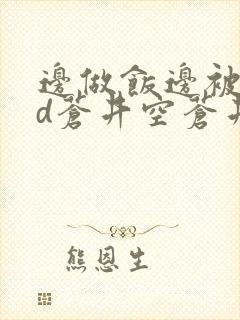 邊做飯邊被
d蒼井空蒼井
熊恩生